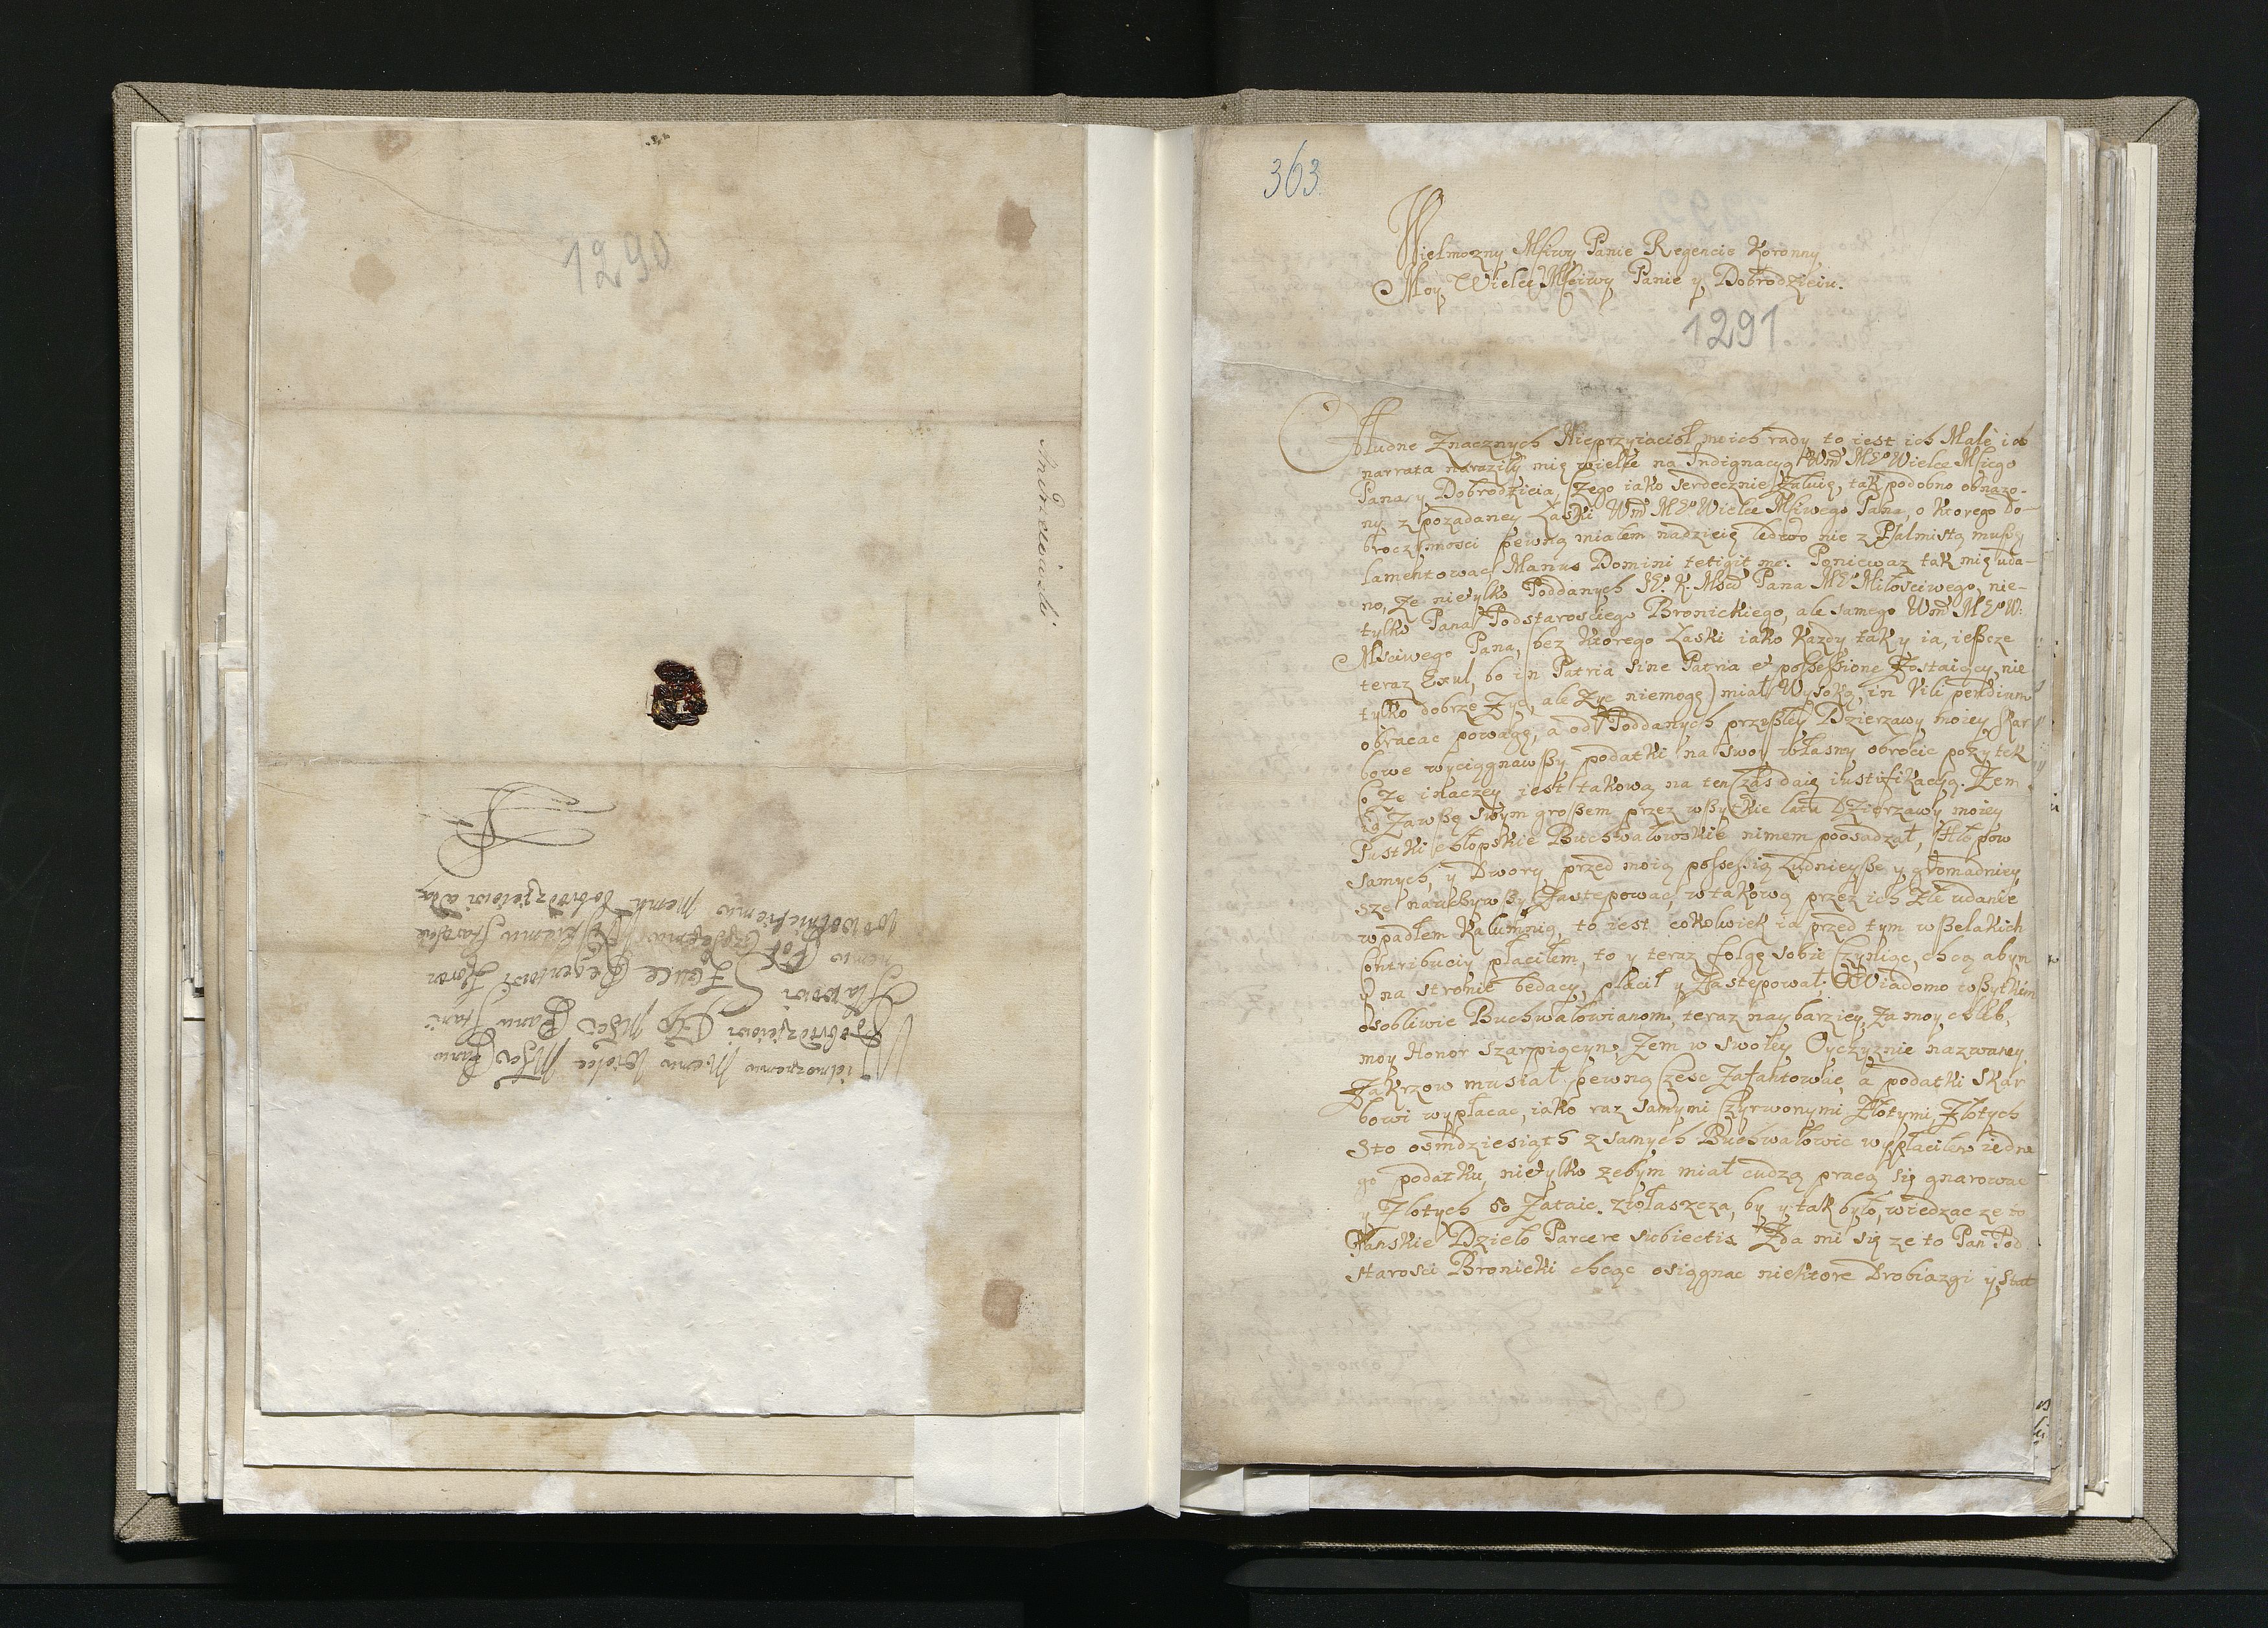 1290
Andrzeiowski
Jelmoznemu Memu Wielce Msci Panu
Dobrodzieiowi Ego Msci Panu Stani
sławowi
Regentowi Koron
nemu
memu dobrodzieiowi
363
Wielmozny Msiwy Panie Regencie Koronny
Moy Wielce Mściwy Panie y Dobrodzieiu.
1291
Obłudne Znacznych Nieprzyiacioł moich rady to iest ich Male ia
narrata naraziły mię wielce na Indignacyą Wm̃ MEo Wielce Msiego
Pana y Dobrodzieia, Czego iako serdecznie Załuię, tak podobno obnazo-
ny z pozadaney Łaski Wm̃ MEo Wielce Msiwego Pana, o ktorego Do-
broczynnosci pewną miałem nadzieię ledwo nie z Psalmistą muszę
lamentowac Manus Domini tetigit me. Poniewaz tak mię uda-
no, ze nietylko Poddanych JE. K. Mści Pana MEo Miłościwego, nie-
tylko Pana Podstarosciego Bronickiego, ale samego Wm̃ MEo W.
Msciwego Pana, (bez ktorego Łaski iako Kazdy tak y ia, ieszcze
teraz Exul, bo in Patria sine Patria et possessione Zostaiący, nie
tylko dobrze Zyc, ale Zyc niemogę) miał Wysoką, in Vili pendium
obracac powagę, a od Poddanych przyszłey Dzierzawy moiey Skar
bowe wyciągnawszy podatki na swoy własny obrocic pozytek
o Ze inaczey iest takową na ten Czas daię iustifikacyą. Zem
ią Zawsze swym groszem przez wszytkie lata Dzierzawy moiey
Pustki chłopskie Buchwałowskie nimem poosadzał, Chłopow
samych, y Dwory przed moią possessią Ludnieysze y gromadniey
sze nauchywszy Zastępowac, w takową przez ich Złe udanie
wpadłem Kalumnią, to iest cokolwiek ia przed tym wszelakich
Contribuciy płaciłem, to y teraz folgę sobie Czyniąc, chcą abym
y na stronie bedacy płacił y Zastępował. Wiadomo wszytkim
osobliwie Buchwałowianom, teraz naybarziey Za moy chleb,
moy Honor szarpiącym, Zem w swoiey Oyczyznie nazwaney
Zakrzow musiał pewną Czesc Zafantowac, a podatki Skar
bowi wypłacac, iako raz samymi Czyrwonymi Złotymi Złotych
Sto osmdziesiąth z samych Buchwałowic wypłaciłem iedne
go podatku, nietylko zebym miał cudzą pracą się gnarowac
y Złotych 50 Zataic. zwłaszcza, by y tak było, wiedząc ze to
Panskie Dzieło Parcere subiectis Zda mi się ze to Pan Pod
starosci Bronicki chcąc osiągnac niektore Drobiazgi y stat